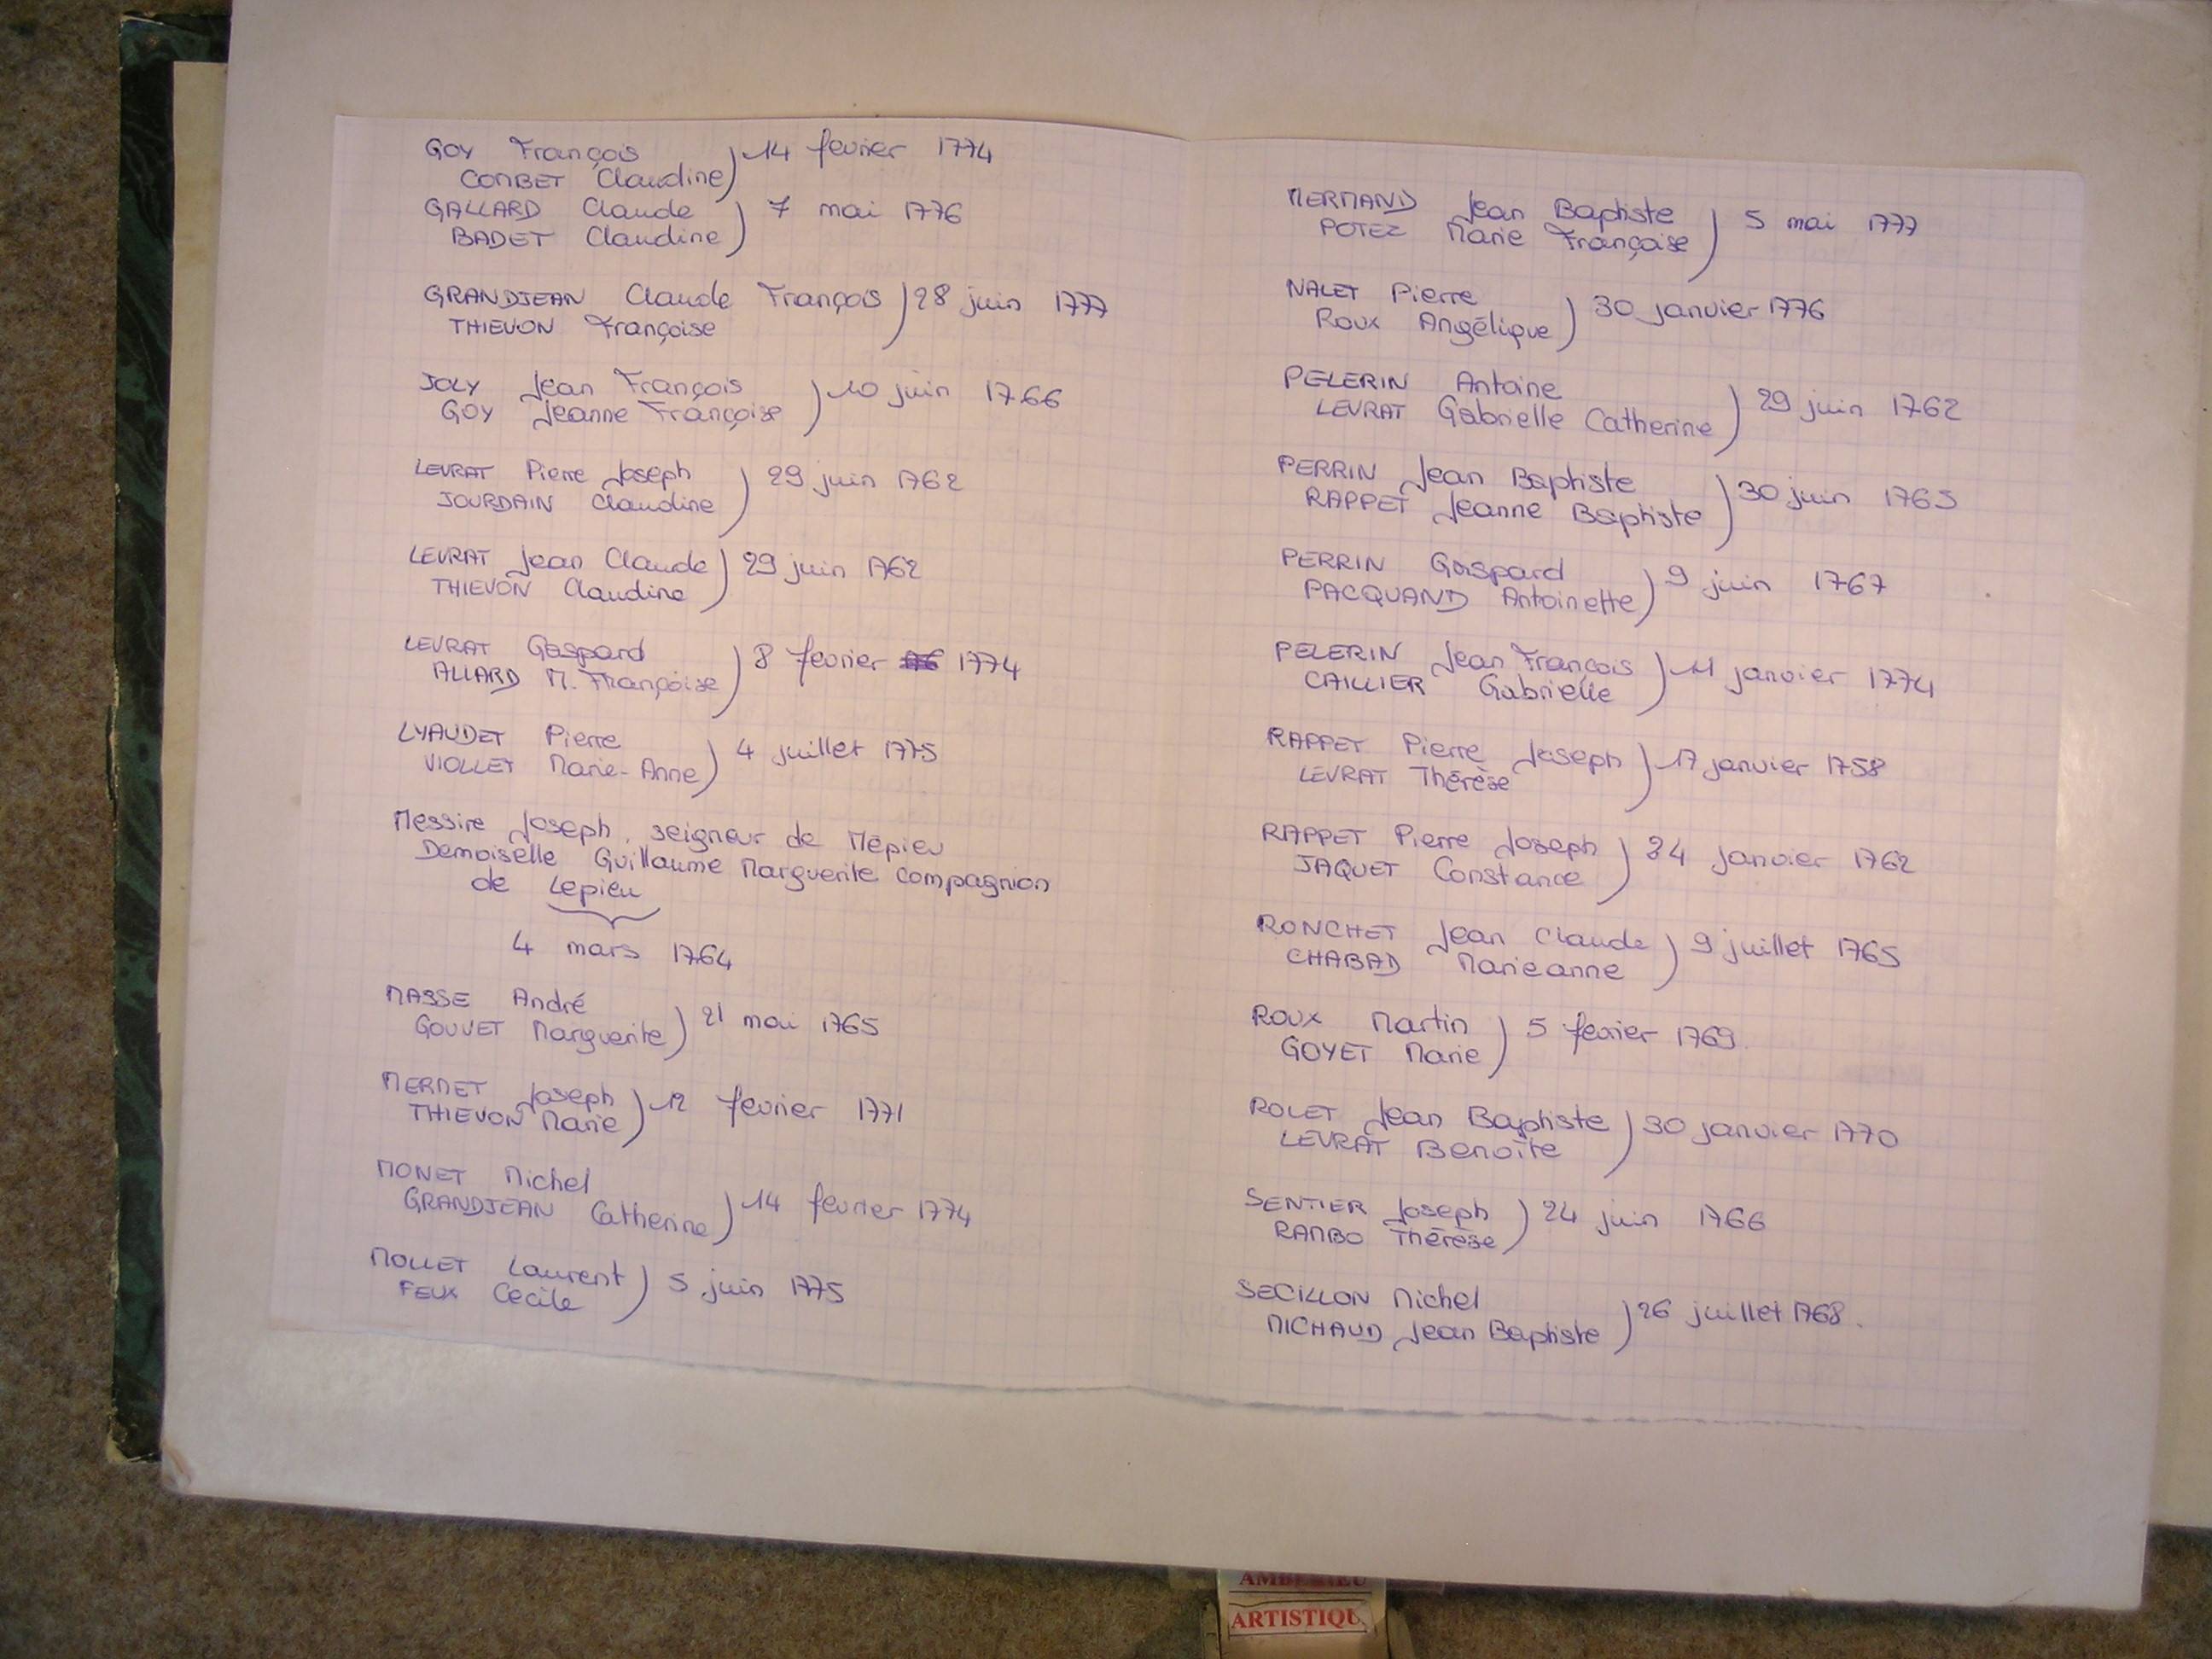 GOY François
COMBET Claudine) 14 fevrier 1774
GALLARD Claude
BADET Claudine) 7 mai 1776
GRANDJEAN Claude François
THIEVON Françoise) 28 juin 1777
JOLY Jean François
GOY Jeanne Françoise) 10 juin 1766
LEVRAT Pierre Joseph
JOURDAIN Claudine) 29 juin 1762
LEVRAT Jean Claude
THIEVON Claudine) 29 juin 1762
LEVRAT Gaspard
ALLARD M. Françoise) 8 fevrier 1774
LYAUDET Pierre
VIOLLET Marie-Anne) 4 juillet 1775
Messire Joseph, seigneur de Mépieu
Demoiselle Guillaume Marguerite Compagnion
de Lepieu
4 mars 1764
MASSE André
GOUVET Marguerite) 21 mai 1765
MERMET Joseph
THIEVON Marie) 12 fevrier 1771
MONET Michel
GRANDJEAN Catherine) 14 fevrier 1774
MOLLET Laurent
FEUX Cécile) 5 juin 1775
MERMAND Jean Baptiste
POTEZ Marie Françoise) 5 mai 1777
NALET Pierre
ROUX Angélique) 30 janvier 1776
PELERIN Antoine
LEVRAT Gabrielle Catherine) 29 juin 1762
PERRIN Jean Baptiste
RAPPET Jeanne Baptiste) 30 juin 1765
PERRIN Gaspard
PACQUAND Antoinette) 9 juin 1767
PELERIN Jean François
CAILLIER Gabrielle) 11 janvier 1774
RAPPET Pierre Joseph
LEVRAT Thérèse) 17 janvier 1758
RAPPET Pierre Joseph
JAQUET Constance) janvier 1762
RONCHET Jean Claude
CHABAD Marieanne) 9 juillet 1765
ROUX Martin
GOYET Marie) 5 fevrier 1769.
ROLET Jean Baptiste
LEVRAT Benoîte) 30 janvier 1770
SENTIER Joseph
RAMBO Thérèse) 24 juin 1766
SECILLON Michel
MICHAUD Jean Baptiste) 26 juillet 1768.
ARTISTIQU